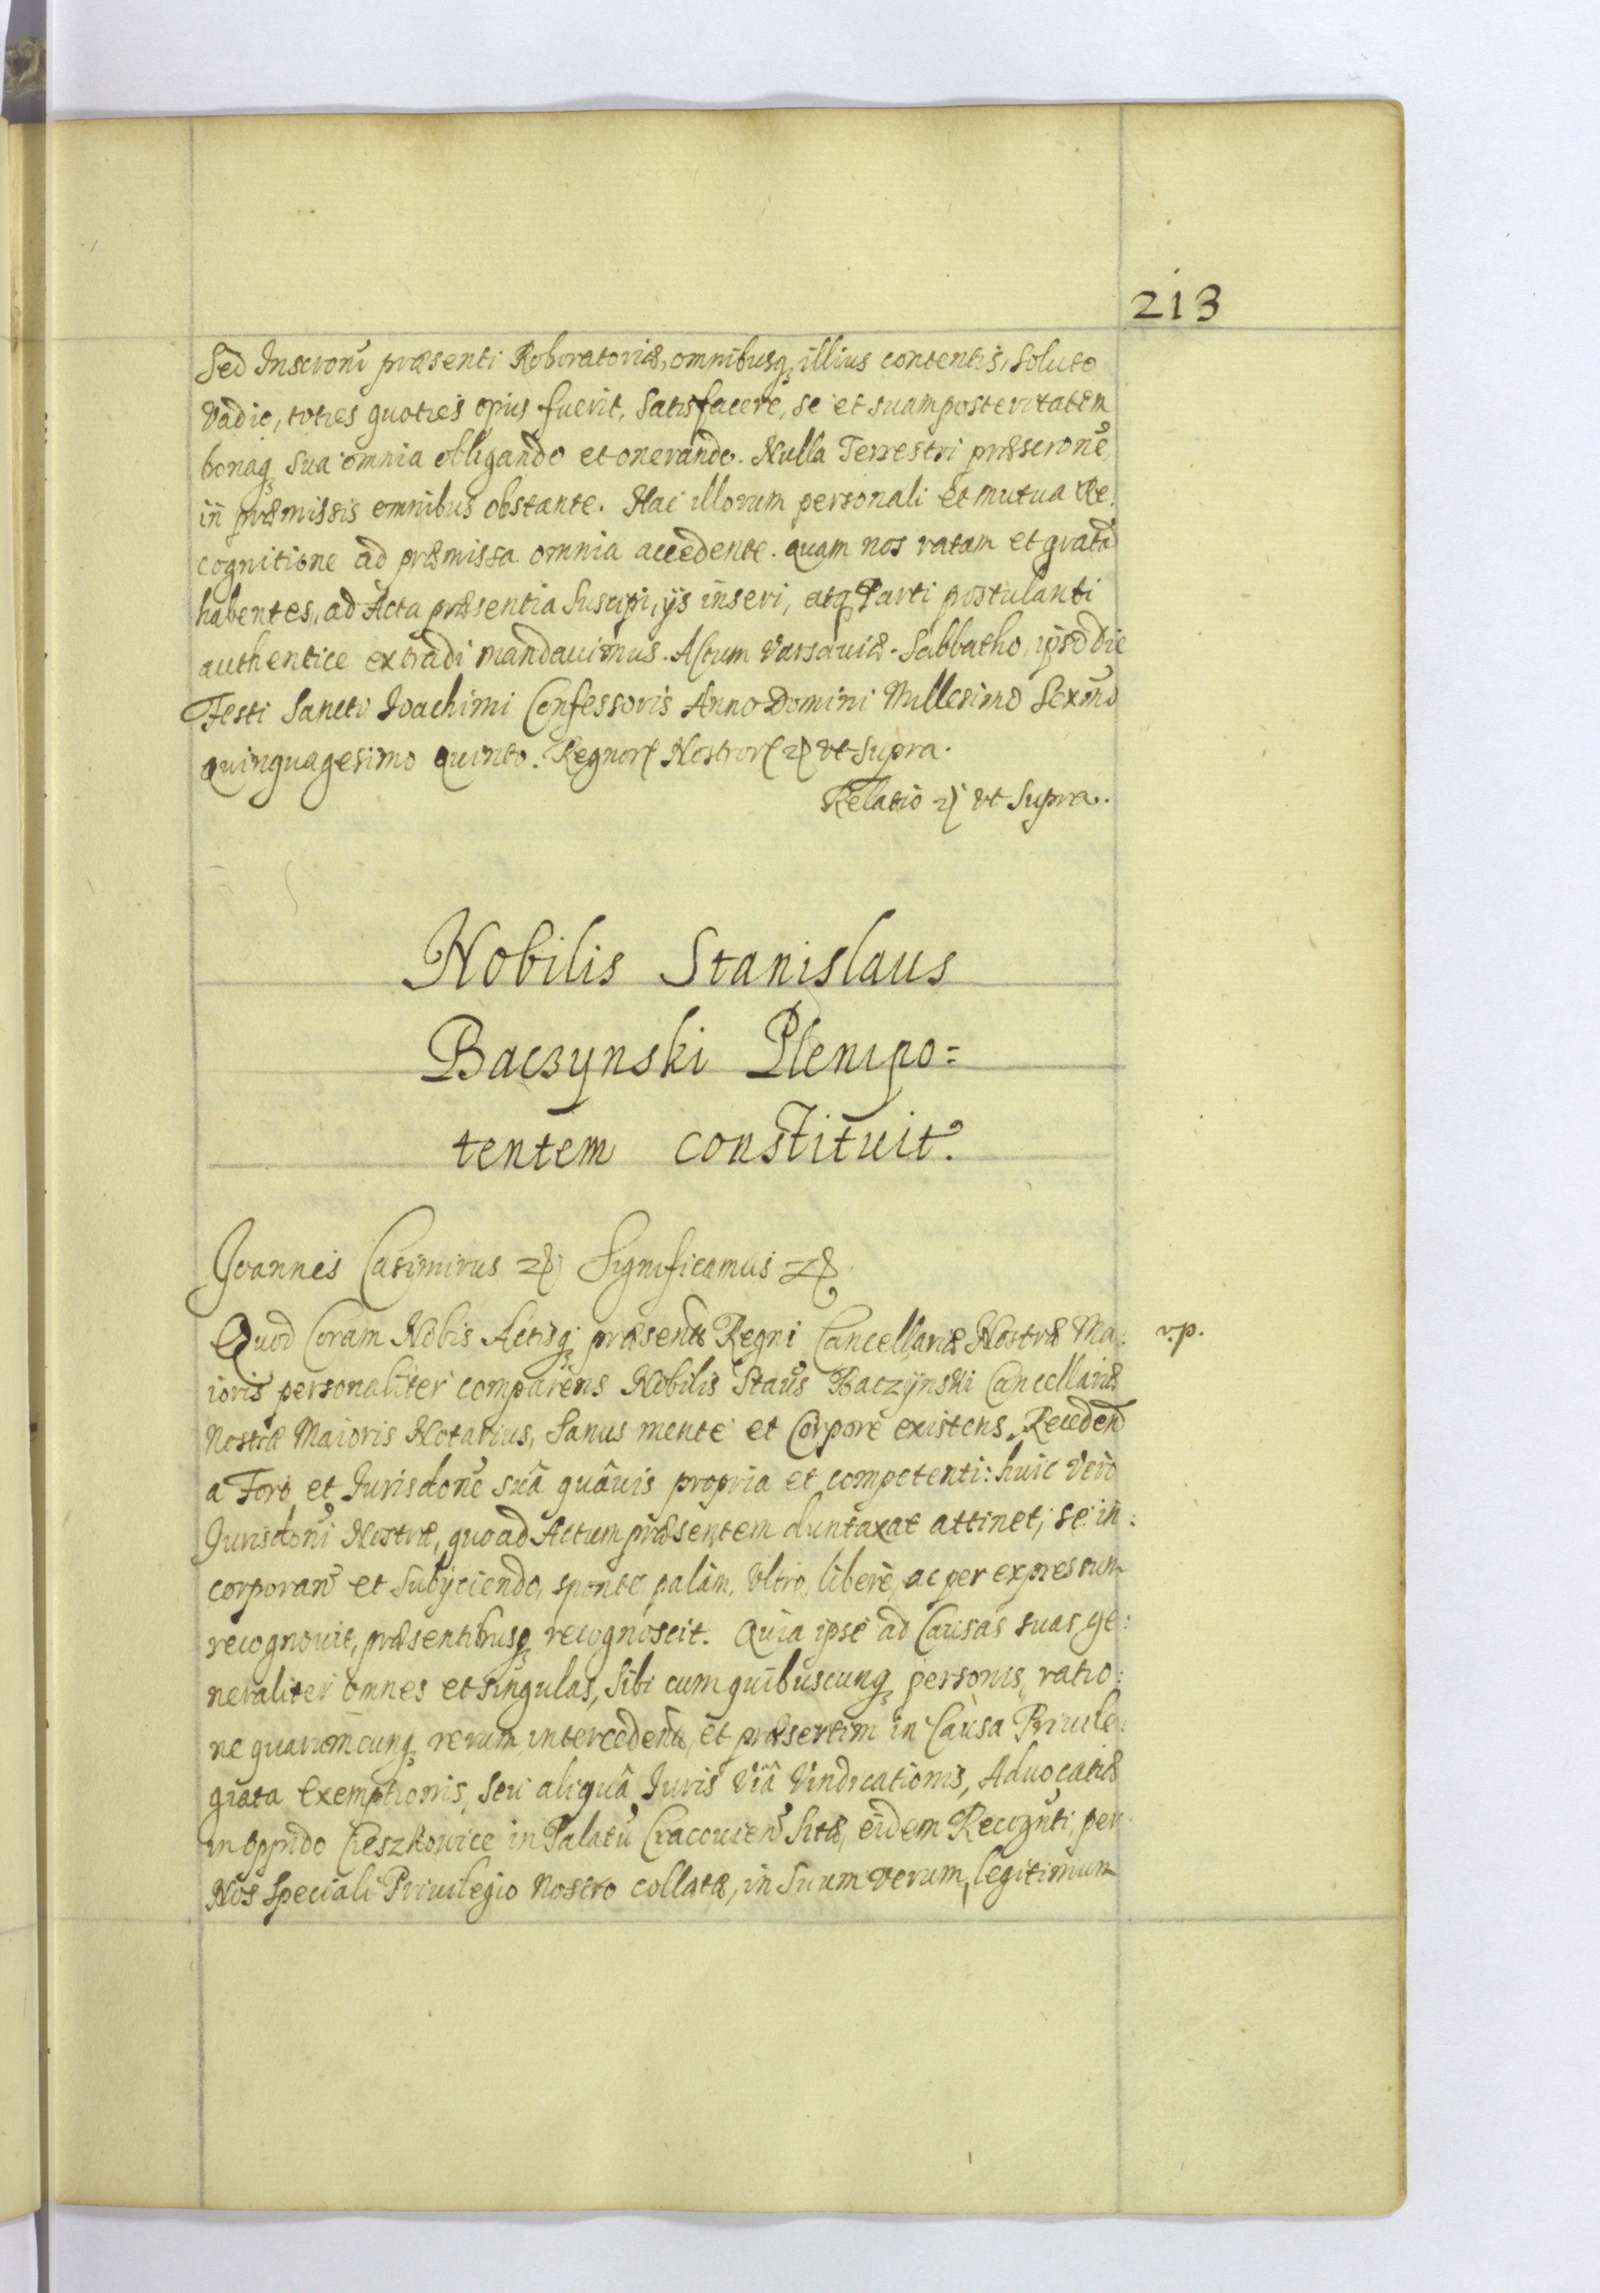 213
Sed Inscroni præsenti Roboratoriæ, omnibusq; illius contentis, soluto
Vadio, toties quoties opus fuerit, Satisfacere, se et suam posteritatem
bonaq; sua omnia obligando et onerando. Nulla Terrestri præscrone,
in præmissis omnibus obstante. Hac illorum personali et mutua Re:
cognitione ad præmissa omnia accedente. quam nos ratam et gratã
habentes, ad Acta præsentia Suscipi, ijs inseri, atq; Parti postulanti
authentice extradi mandavimus. Actum Varsaviæ. Sabbatho, ipso die
Festi Sancti Joachimi Confessoris Anno Domini Millesimo Sexmo
Quinquagesimo Quinto. Regnor Nostror &c vt Supra.
Relatio &c vt Supra.
Nobilis Stanislaus
Baczynski Plenipo=
tentem constituit.
Joannes Casimirus &c Significamus &c
Quod Coram Nobis Actisq; præsentis Regni Cancellariæ Nostræ Ma:
ioris personaliter comparens Nobilis Staus Baczÿnski Cancellariæ
Nostræ Maioris Notarius, Sanus mente et Corpore existens, Recedend
a Foro et Jurisdone suâ quâuis propria et competenti: huic vero
Jurisdoni Nostræ, quoad Actum præsentem duntaxat attinet, se in:
corporan et Subijciendo, sponte, palam, vltro, libere, ac per expressum
recognouit, præsentibusq; recognoscit. Quia ipse ad Causas suas ge:
neraliter omnes et singulas, Sibi cum quibuscunq; personis, ratio:
ne quarumcunq; rerum intercedentes, et præsertim in Causa Priuile:
giata Exemptionis, seu aliquâ Juris viâ Vindicationis, Aduocatiæ
in Oppido Cieszkowice in Palatu Cracouien Sitæ, eidem Recognti, per
Nos Speciali Priuilegio Nostro collatæ, in Suum verum, legitimum
r.p.